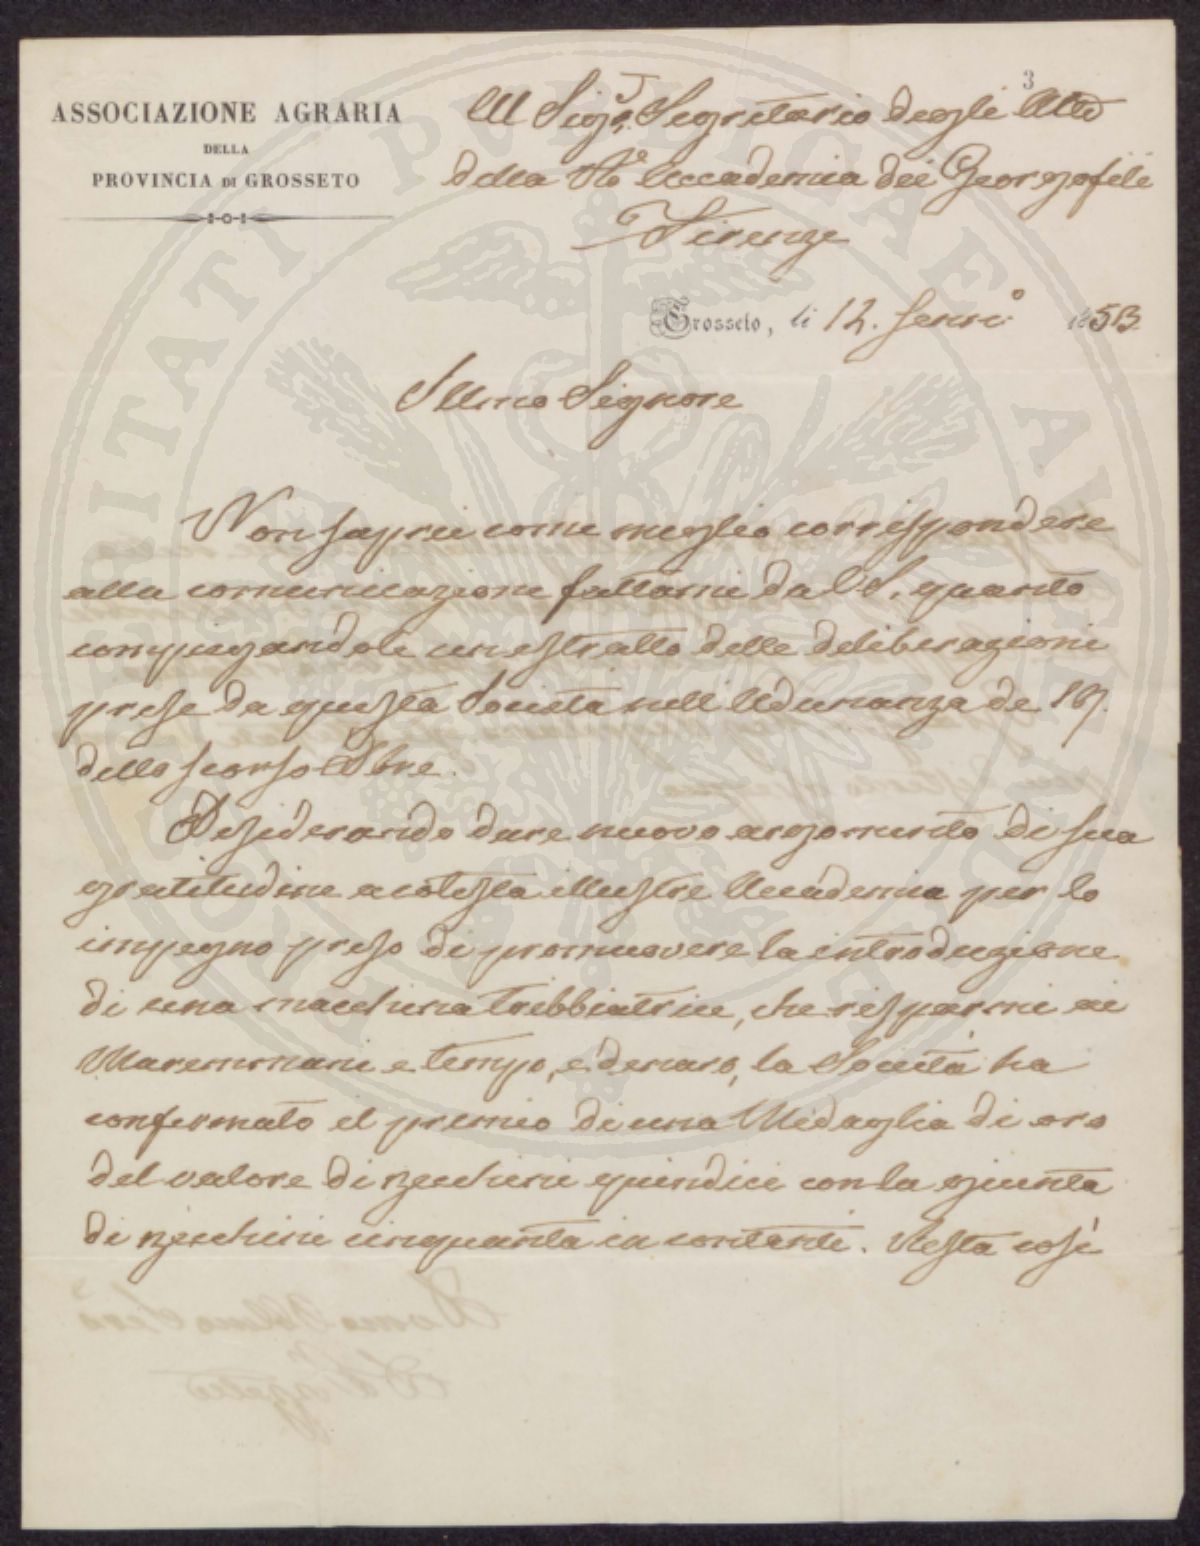 3
ASSOCIAZIONE AGRARIA
DELLA
PROVINCIA DI GROSSETO
Al Sigr. Segretario degli Atti
della Ra. Accademia dei Georgofili
Firenze
Grosseto, li 12. Genno. 1853.
Illmo Signore
Non saprei come meglio corrispondere
alla comunicazione fattami da V. S. quanto
compiegandole un estratto delle deliberazioni
prese da questa Società nell'Adunanza de 19.
dello scorso Xbre.
Desiderando dare nuovo argomento di sua
gratitudine a cotesta illustre Accademia per lo
impegno preso di promuovere la introduzione
di una macchina trebbiatrice, che risparmi ai
Maremmani e tempo, e denaro, la Società ha
confermato il premio di una Medaglia di oro
del valore di zecchini quindici con la giunta
di zecchini cinquanta in contanti. Resta così